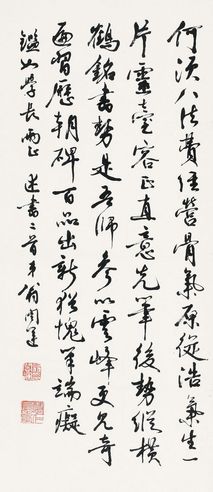 何須八法費經營骨氣原從浩氣生一
片靈臺容正直意先筆後勢縱橫
鶴銘書勢是吾師參以雲峰更見奇
遍習歷朝碑百品出新猶愧筆端癡
學長兩正 述書二首 弟翁闓運